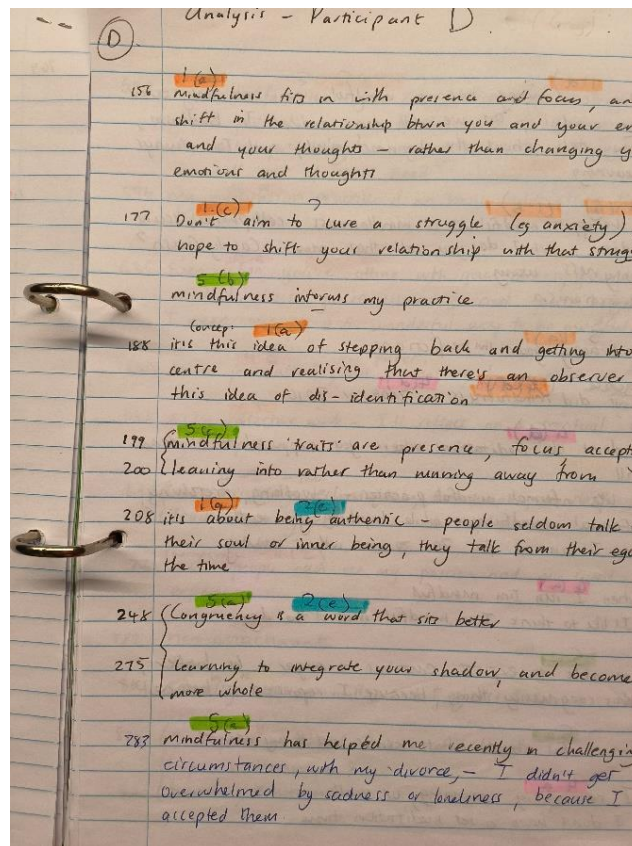 Analysis - Participant D
D
1(a)
156 Mindfulness fits in with presence and focus, an
shift in the relationship btwn you and your em
and your thoughts - rather than changing y
emotions and thoughts
1.(c) ?
177 Don't aim to cure a struggle (eg anxiety)
hope to shift your relationship with that strugg
5(b)
mindfulness informs my practice
concept 1(a)
188 it's this idea of stepping back and getting into
centre and realising that there's an observer
this idea of dis-identification
5(c)
199 mindfulness 'traits' are presence, focus, accept
200 leaning into rather than running away from
1(a) 2(e)
208 it's about being authentic - people seldom talk
their soul or inner being, they talk from their ego
the time
5(a) 2(e)
248 Congruency is a word that sits better
275 learning to integrate your shadow, and become
more whole
5(a)
283 mindfulness has helped me recently in challenging
circumstances, with my divorce, - I didn't get
overwhelmed by sadness or loneliness, because I
accepted them